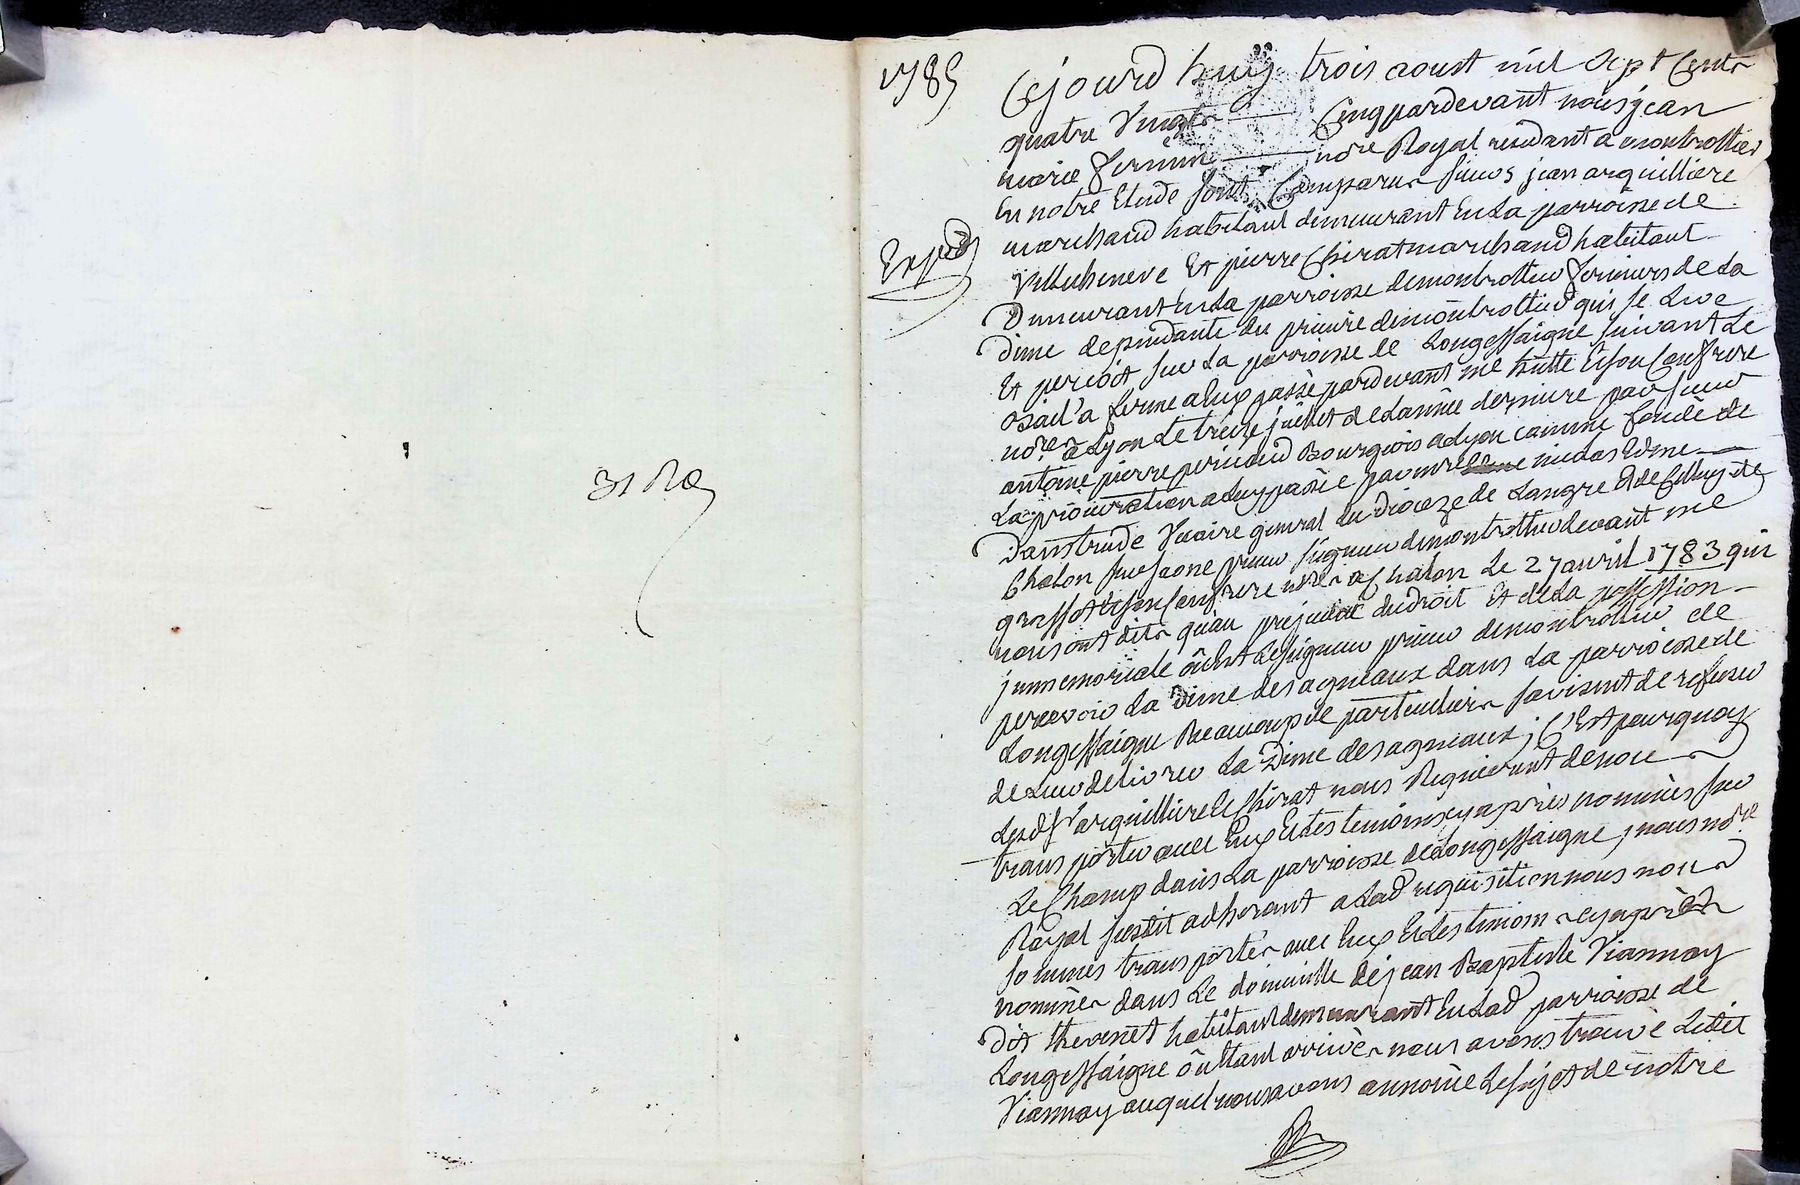 31 Re
1785
Cejourd huy trois aoust mil sept Cents
quatre Vingts Cinq pardevant nous jean
marie fermin nore Royal residant a montrottier
En notre Etude sont Comparus sieurs jean arquilliere
marchand habitant demeurant En La parroisse de
Expéd
Villecheneve Et pierre Chirat marchand habitant
Demeurant En La parroisse de montrottier fermiers de La
Dime dependante du prieuré de montrottier qui se Leve
Et percoit sur La parroisse de Longessaigne suivant Le
bail a ferme a Eux passé pardevant me Et son Confrere
nores a Lyon Le treize juillet de Lannée derniere par sieur
antoine pierre Bourgeois a Lyon comme fondé de
La procuration a Luy passée par mre nicolas Edme
Damstrude Vicaire general du Dioceze de Langre Et de Celluy de
Chalon sur saone prieur seigneur de montrottier devant me
grassot Et son Confrere nores a Chalon Le 27 avril 1783 qui
nous ont dits quau prejudice du droit Et de La possession
jmmemoriale ou Est Le seigneur prieur de montrottier de
percevoir La Dime des agneaux dans La parroisse de
Longessaigne Beaucoup de particuliers savisent de refuser
de Leur delivrer La Dime des agneaux ; C'Est pourquoy
Lesd srs arquilliere Et Chirat nous Requierent de nous
transporter avec Eux Et des temoins cy après nommés sur
Le Champ dans La parroisse de Longessaigne ; nous nore
Royal susdit adherant a Lad requisition nous nous
sommes transportés avec Eux Et des temoins cy après
nommés dans Le domicille de jean Baptiste Viannay
dit thevenet habitant demeurant En Lad parroisse de
Longessaigne ou Etant arrivés nous avons trouvé Ledit
Viannay auquel nous avons annoncé Le sujet de notre